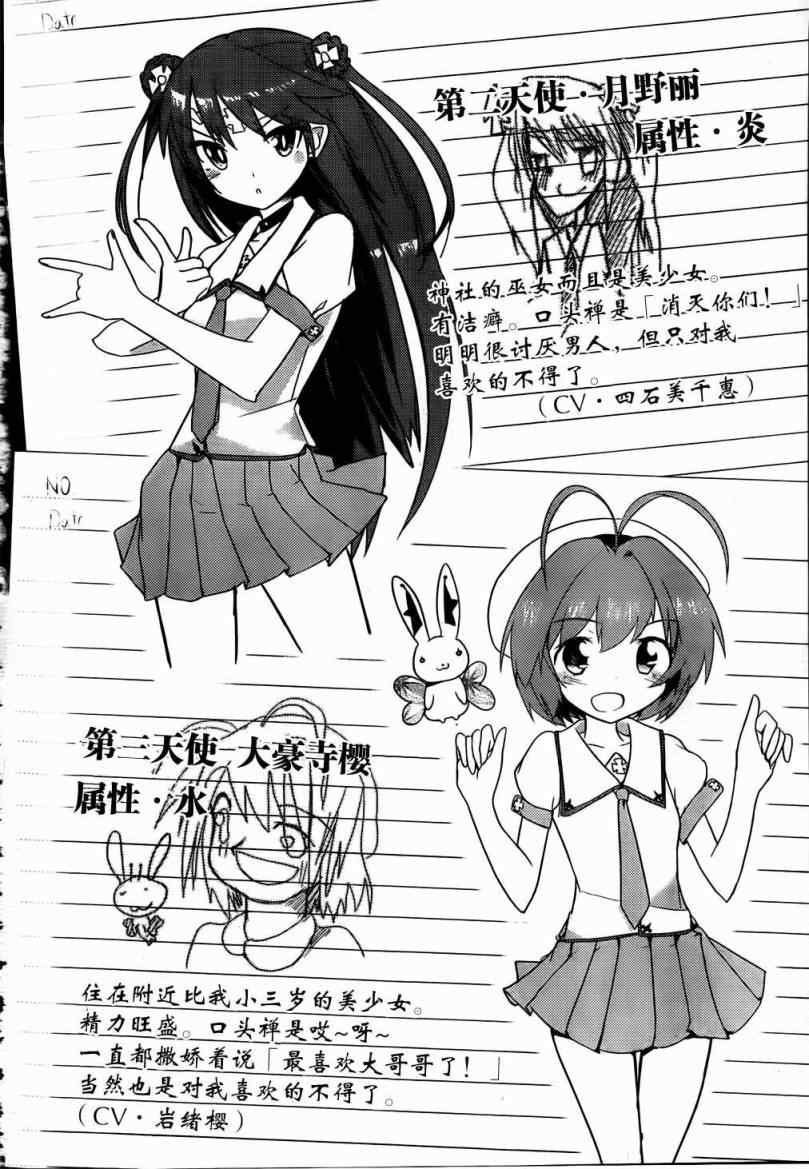 Datr
第二天使·月野丽
属性·炎
神社的巫女而且是美少女。
有洁癖。口头禅是「消灭你们！」
明明很讨厌男人，但只对我
喜欢的不得了。
（CV·四石美千惠）
NO
Datr
第三天使 大豪寺樱
属性·水
住在附近比我小三岁的美少女。
精力旺盛。口头禅是哎~呀~
一直都撒娇着说「最喜欢大哥哥了！」
当然也是对我喜欢的不得了。
（CV·岩绪樱）